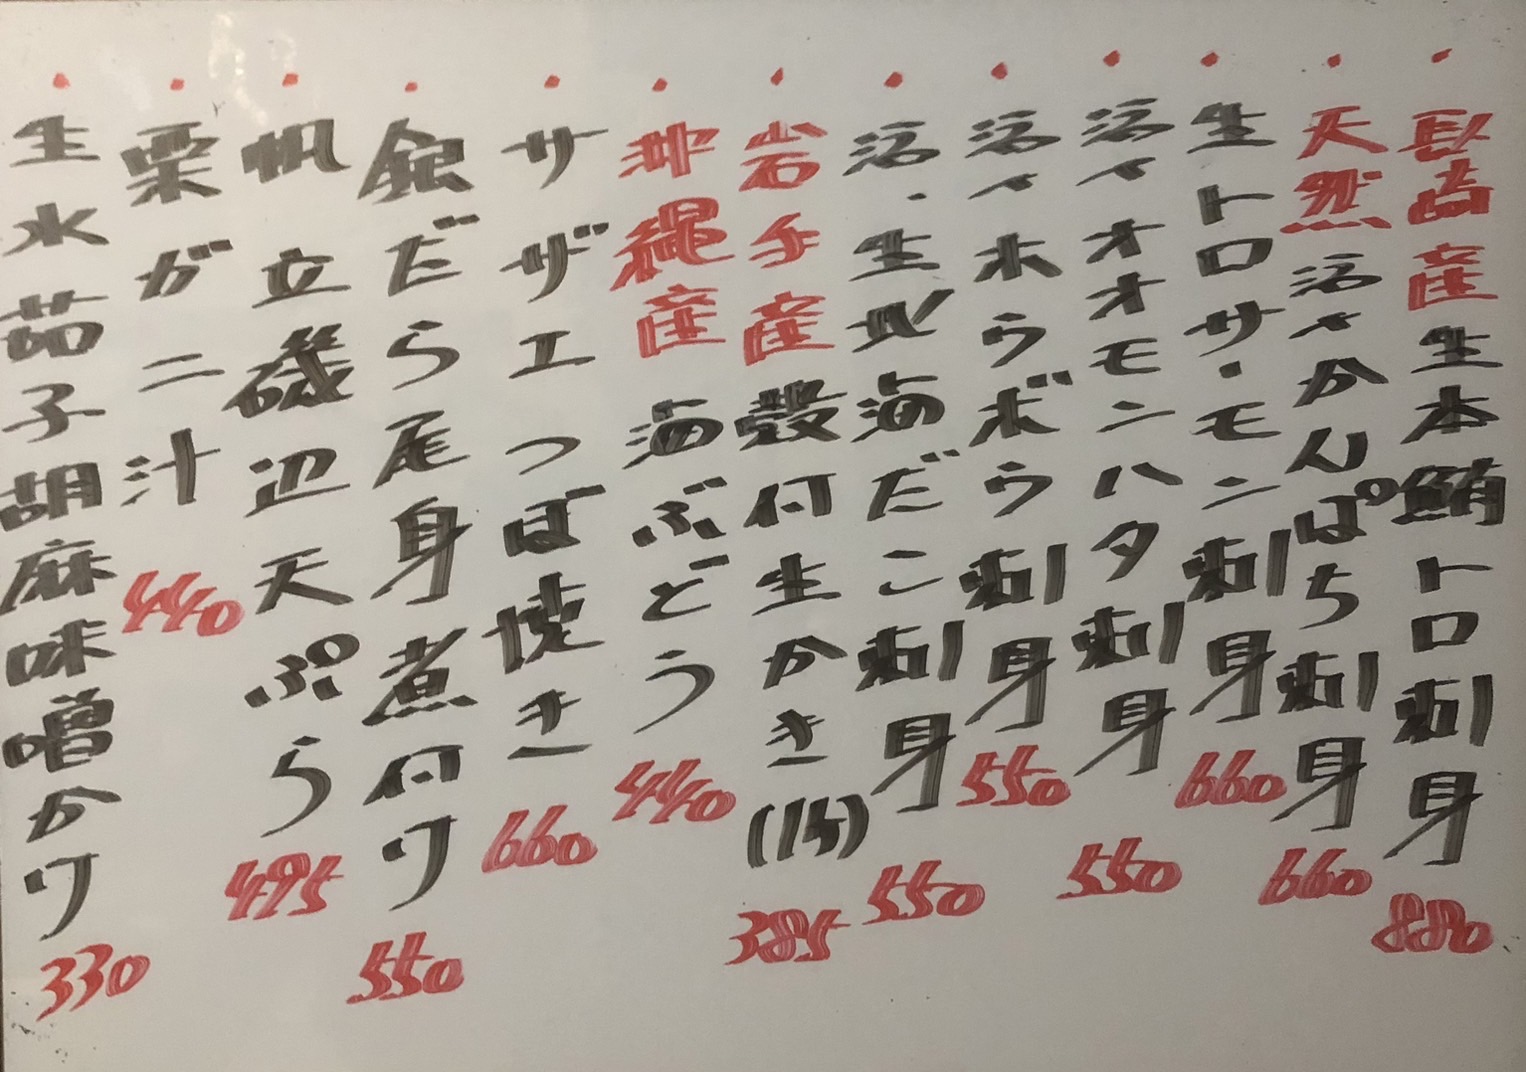 ・長崎産生本鮪トロ刺身 880
・天然活〆かんぱち刺身 660
・生トロサーモン刺身 660
・活〆オオモンハタ刺身 550
・活〆ホウボウ刺身 550
・活・生北海だこ刺身 550
・岩手産殻付生かき(1ケ) 385
・沖縄産海ぶどう 440
・サザエつぼ焼き 660
・銀だら尾身煮付け 550
・帆立磯辺天ぷら 495
・栗がニ汁 440
・生水茄子胡麻味噌かけ 330